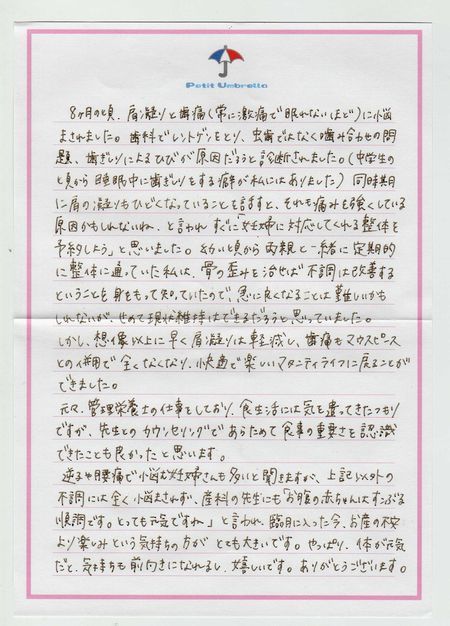 Petit Umbrella
8ヶ月の頃、肩凝りと歯痛(常に激痛で眠れないほど)に悩
まされました。歯科でレントゲンをとり、虫歯ではなく噛み合わせの問
題、歯ぎしりによるひびが原因だろうと診断されました。(中学生の
頃から睡眠中に歯ぎしりをする癖が私にはありました)同時期
に肩の凝りもひどくなっていることを話すと、それも痛みを強くしている
原因かもしれないね、と言われ すぐに「妊婦に対応してくれる整体を
予約しよう」と思いました。幼い頃から両親と一緒に定期的
に整体に通っていた私は、骨の歪みを治せば不調は改善する
ということを身をもって知っていたので、急に良くなることは難しいかも
しれないが、せめて現状維持はできるだろうと思っていました。
しかし、想像以上に早く肩凝りは軽減し、歯痛もマウスピース
との併用で全くなくなり、快適で楽しいマタニティライフに戻ることが
できました。
元々、管理栄養士の仕事をしており、食生活には気を遣ってきたつもり
ですが、先生とのカウンセリングであらためて食事の重要さを認識
できたことも良かったと思います。
逆子や腰痛で悩む妊婦さんも多いと聞きますが、上記以外の
不調には全く悩まされず、産科の先生にも「お腹の赤ちゃんはすこぶる
順調です。とっても元気ですね」と言われ、臨月に入った今、お産の不安
より楽しみという気持ちの方がとても大きいです。やっぱり、体が元気
だと、気持ちも前向きになれるし、嬉しいです。ありがとうございます。